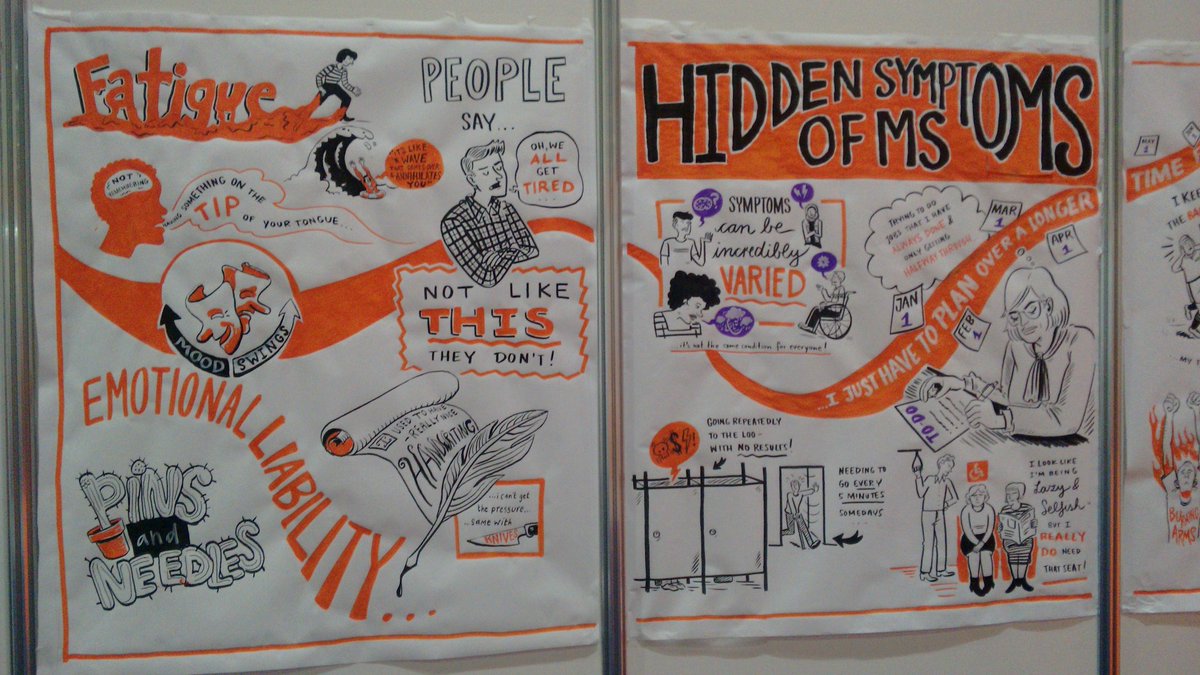 Fatigue
"IT'S LIKE
A WAVE
THAT COMES OVER
& ANNIHILATES
YOU"
PEOPLE
SAY...
OH, WE
ALL
GET
TIRED
NOT LIKE
THIS
THEY DON'T!
NOT
REMEMBERING
HAVING SOMETHING ON THE
TIP OF YOUR TONGUE...
MOOD
SWINGS
EMOTIONAL LIABILITY...
I USED TO HAVE
REALLY NICE
HANDWRITING
...i can't get
the pressure...
...same with
KNIVES
PINS
and
NEEDLES
HIDDEN SYMPTOMS
OF MS
SYMPTOMS
can be
incredibly
VARIED
...it's not the same condition for everyone!
TRYING TO DO
JOBS THAT I HAVE
ALWAYS DONE &
ONLY GETTING
HALFWAY THROUGH
JAN
1
FEB
1
MAR
1
APR
1
...I JUST HAVE TO PLAN OVER A LONGER
TO-DO
GOING REPEATEDLY
TO THE LOO -
WITH NO RESULTS!
NEEDING TO
GO EVERY
5 MINUTES
SOMEDAYS
I LOOK LIKE
I'M BEING
Lazy &
Selfish -
BUT I
REALLY
DO NEED
THAT SEAT!
MAY
1
TIME
I KE
THE
MY
BURNING
ARMS